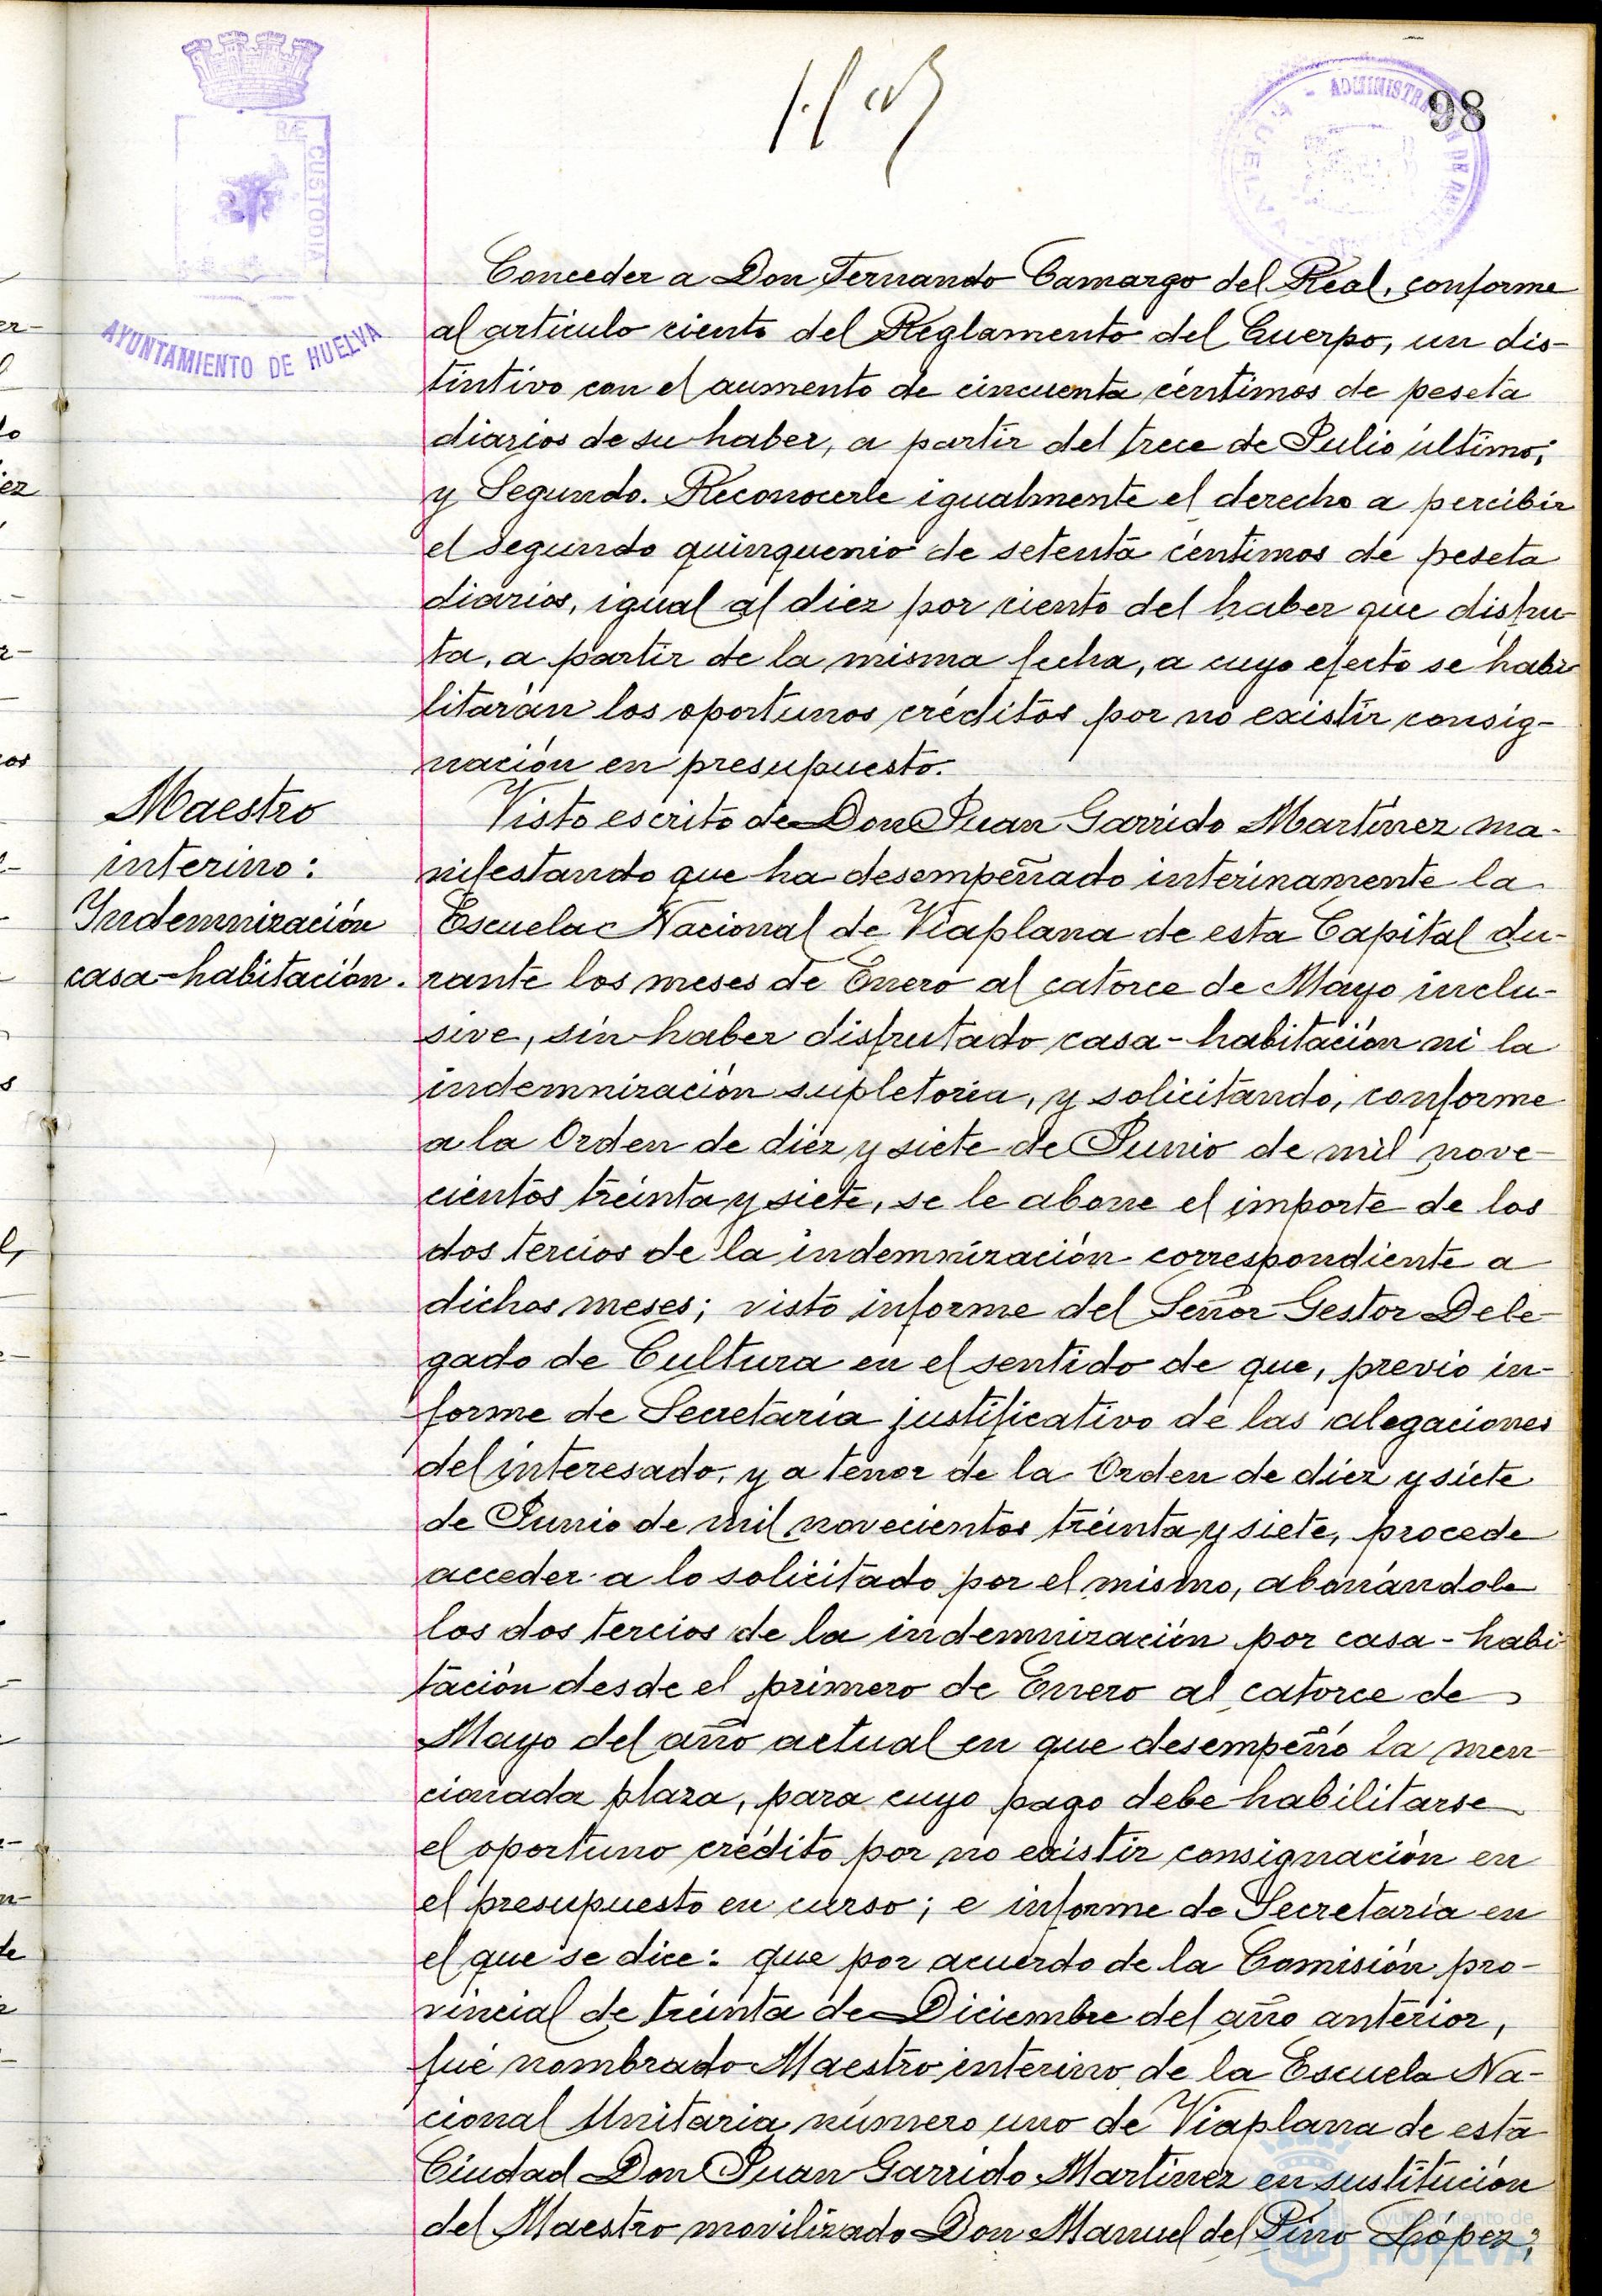 98
ADMINISTRA
HUELVA
RÆ
CUSTODIA
AYUNTAMIENTO DE HUELVA
Conceder a Don Fernando Camargo del Real, conforme
al artículo ciento del Reglamento del Cuerpo, un dis-
tintivo con el aumento de cincuenta céntimos de peseta
diarios de su haber, a partir del trece de Julio último;
y Segundo. Reconocerle igualmente el derecho a percibir
el segundo quinquenio de setenta céntimos de peseta
diarios, igual al diez por ciento del haber que disfru-
ta, a partir de la misma fecha, a cuyo efecto se habi-
litarán los oportunos créditos por no existir consig-
nación en presupuesto.
Maestro
interino:
Indemnización
casa-habitación.
Visto escrito de Don Juan Garrido Martínez ma-
nifestando que ha desempeñado interinamente la
Escuela Nacional de Viaplana de esta Capital du-
rante los meses de Enero al catorce de Mayo inclu-
sive, sin haber disfrutado casa-habitación ni la
indemnización supletoria, y solicitando, conforme
a la Orden de diez y siete de Junio de mil nove-
cientos treinta y siete, se le abone el importe de los
dos tercios de la indemnización correspondiente a
dichos meses; visto informe del Señor Gestor Dele-
gado de Cultura en el sentido de que, previo in-
forme de Secretaría justificativo de las alegaciones
del interesado, y a tenor de la Orden de diez y siete
de Junio de mil novecientos treinta y siete, procede
acceder a lo solicitado por el mismo, abonándole
los dos tercios de la indemnización por casa-habi-
tación desde el primero de Enero al catorce de
Mayo del año actual en que desempeñó la men-
cionada plaza, para cuyo pago debe habilitarse
el oportuno crédito por no existir consignación en
el presupuesto en curso; e informe de Secretaría en
el que se dice: que por acuerdo de la Comisión pro-
vincial de treinta de Diciembre del año anterior,
fué nombrado Maestro interino de la Escuela Na-
cional Unitaria número uno de Viaplana de esta
Ciudad Don Juan Garrido Martínez en sustitución
del Maestro movilizado Don Manuel del Pino López;
Ayuntamiento de
HUELVA